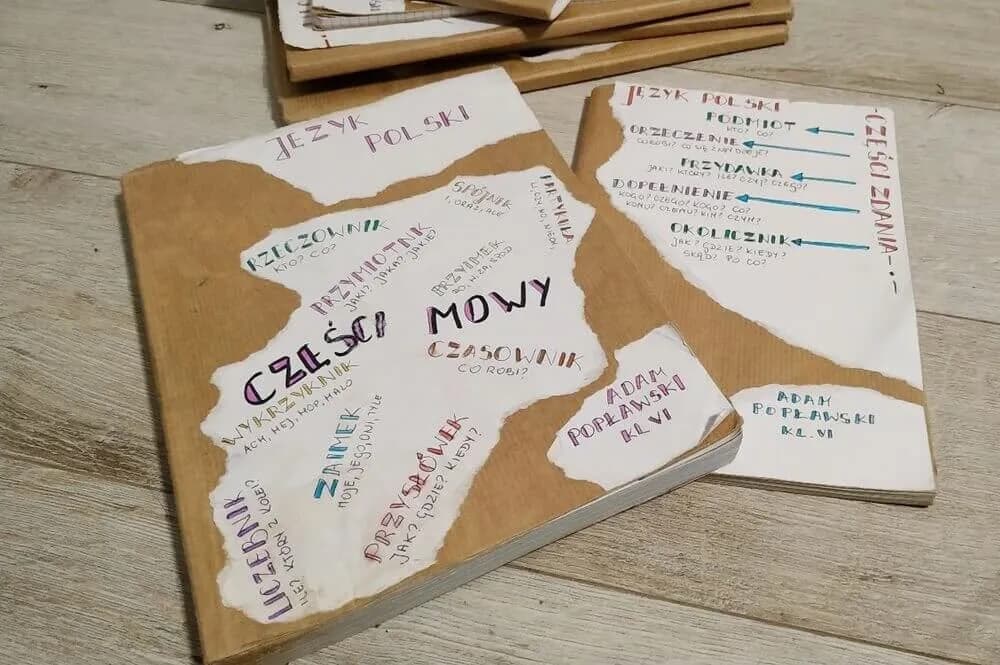 JĘZYK POLSKI
RZECZOWNIK
KTO? CO?
PRZYMIOTNIK
JAKI? JAKA? JAKIE?
SPÓJNIK
I, ORAZ, ALE
PARTYKUŁA
LI, CZY, NO, NIECH
PRZYIMEK
DO, NA, ZA, SPOD
CZĘŚCI MOWY
CZASOWNIK
CO ROBI?
WYKRZYKNIK
ACH, HEJ, HOP, HALO
ZAIMEK
MOJE, JEGO, OWI, TYLE
PRZYSŁÓWEK
JAK? GDZIE? KIEDY?
LICZEBNIK
ILE? KTÓRY Z KOLEI?
ADAM
POPŁAWSKI
KL. VI
JĘZYK POLSKI
PODMIOT
KTO? CO?
ORZECZENIE
CO ROBI? CO SIĘ Z NIM DZIEJE?
PRZYDAWKA
JAKI? KTÓRY? ILE? CZYJ? CZEGO?
DOPEŁNIENIE
KOGO? CZEGO? KOGO? CO?
KOMU? CZEMU? KIM? CZYM?
OKOLICZNIK
JAK? GDZIE? KIEDY?
SKĄD? PO CO?
-CZĘŚCI ZDANIA-
ADAM
POPŁAWSKI
KL. VI